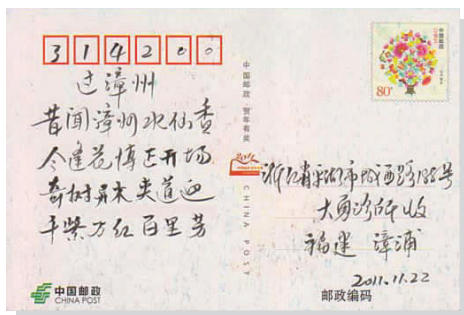 314200
过漳州
昔闻漳州水仙香
今逢花博正开场
奇树异木夹道迎
千紫万红百里芳
中国邮政
80分
中国邮政·贺年有奖
2011
CHINA POST
浙江省平湖市城西路188号
大勇诊所收
福建 漳浦
2011.11.22
中国邮政
CHINA POST
邮政编码